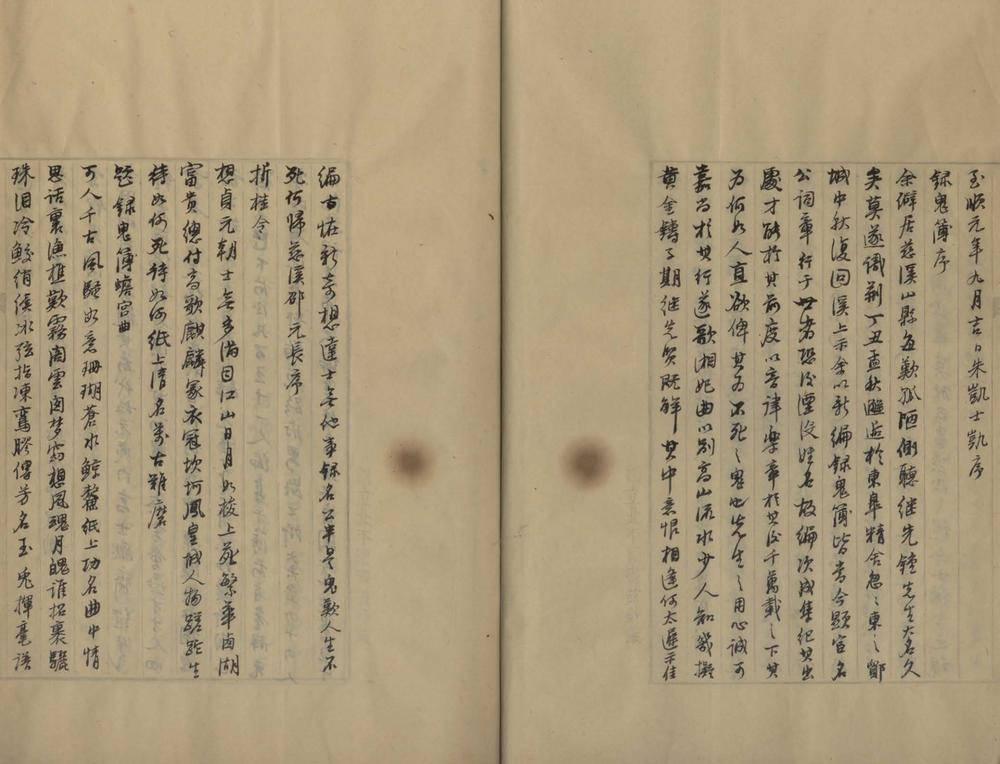 至順元年九月吉日朱凱士凱序
録鬼簿序
余僻居慈溪山縣每歎孤陋側聽继先鍾先生大名久
矣莫遂識荆丁丑孟秋邂逅於東皋精舍忽々東之鄞
城中秋復回溪上示余以新編録鬼簿皆当今顕宦名
公詞章行于世者恐後湮没姓名故編次成集纪其出
處才能於其前度以音律樂章於其後千萬載之下其
为何如人直欲俾其为不死之鬼也先生之用心誠可
嘉尚於其行遂歌湘妃曲以别高山流水少人知幾擬
黄金鑄子期继先贤既解其中意恨相逢何太遲示佳
編古怪新奇想達士無他事録名公半是鬼歎人生不
死何歸慈溪邵元長序
折桂令
想貞元朝士無多滿目江山日月如梭上苑繁華西湖
富貴總付高歌麒麟冢衣冠坎坷鳳皇城人物蹉跎生
待如何死待如何紙上清名萬古難磨
題録鬼簿蟾宫曲
可人千古風騷如意珊瑚蒼水鲸鰲紙上功名曲中情
思話裏漁樵歎霧閣雲窗梦窅想風魂月魄谁招裹驪
珠泪冷鮫绡续冰弦指凍鸞膠傳芳名玉兔揮毫譜